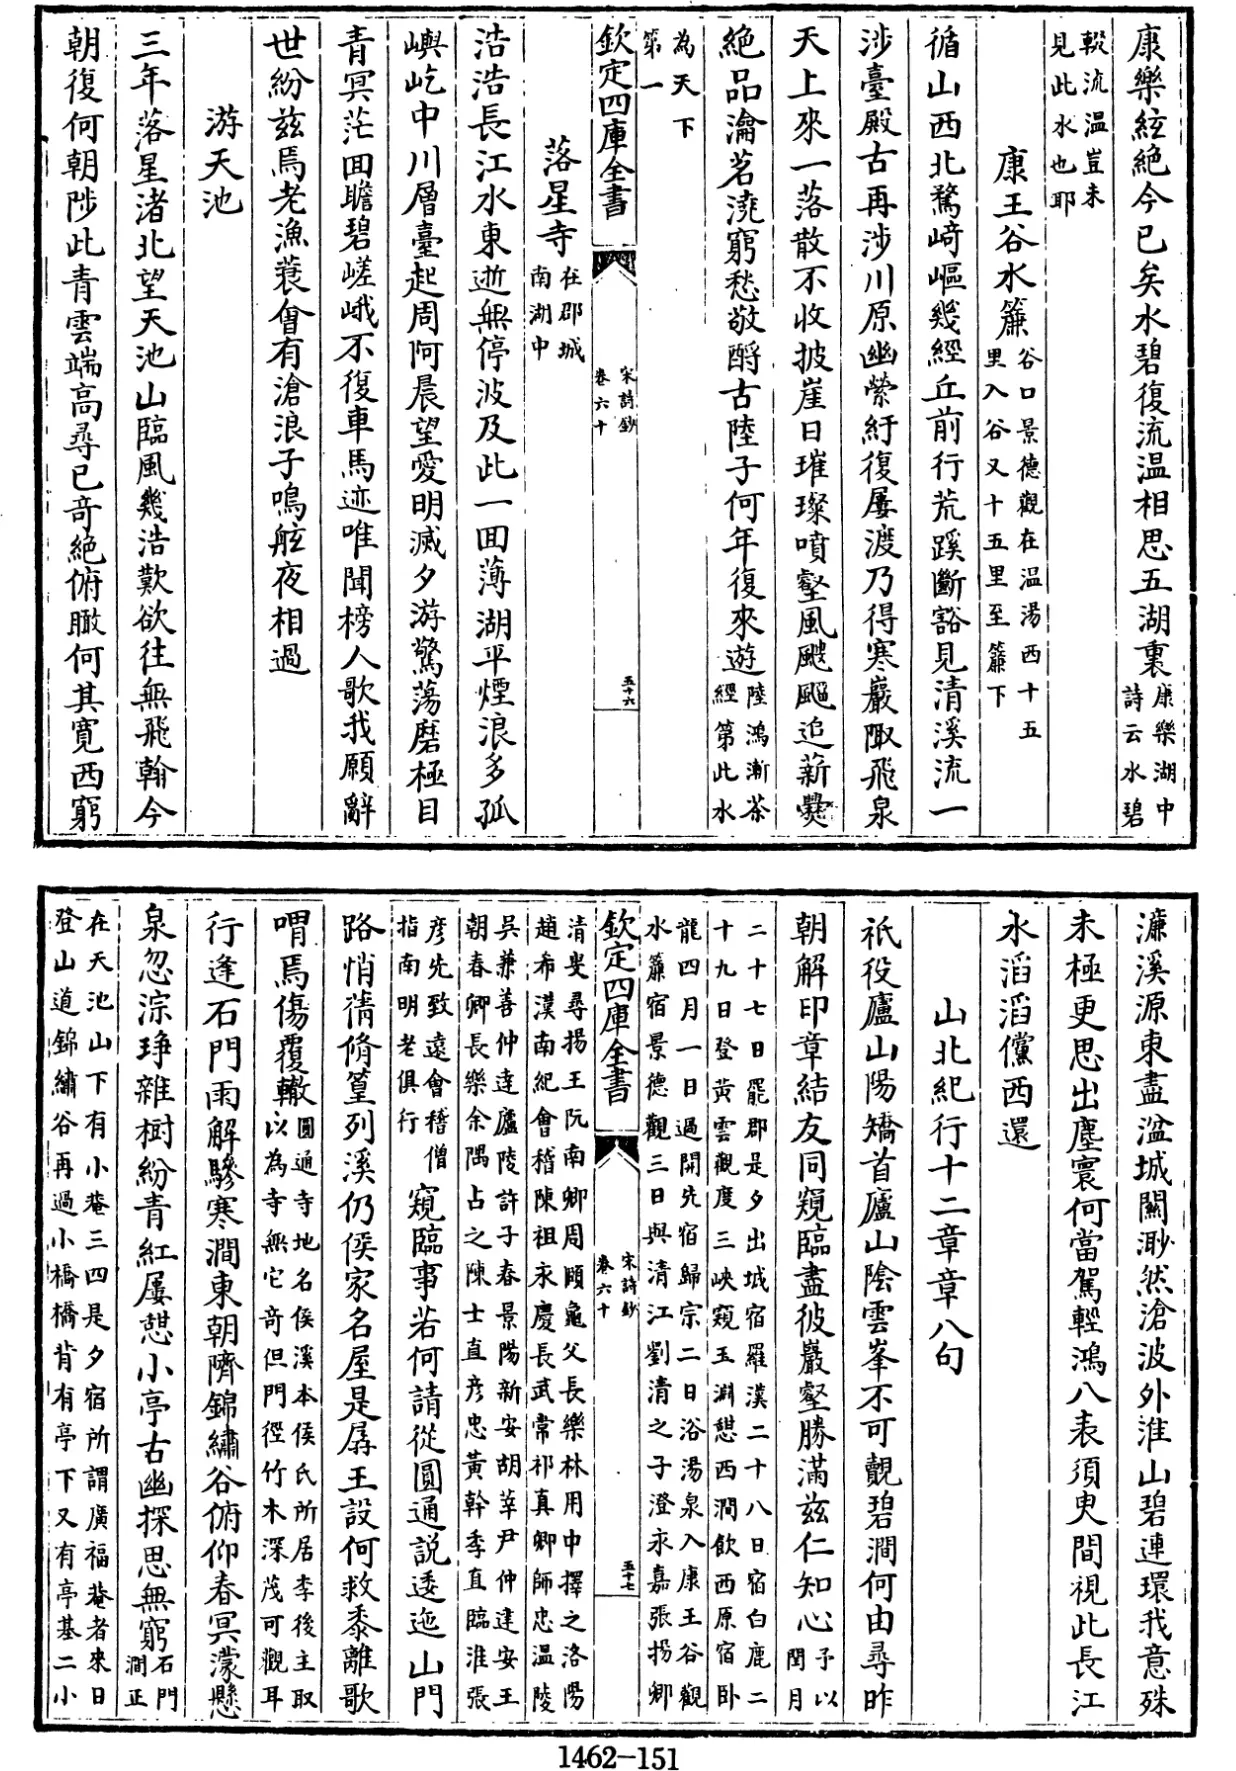 康樂絃絶今已矣水碧復流温相思五湖裏康樂湖中詩云水碧
輟流温豈未見此水也耶
康王谷水簾谷口景德觀在温湯西十五里入谷又十五里至簾下
循山西北騖崎嶇幾經丘前行荒蹊斷豁見清溪流一
涉臺殿古再涉川原幽縈紆復屢渡乃得寒巖陬飛泉
天上來一落散不收披崖日璀璨噴壑風颼飀追薪爨
絶品瀹茗澆窮愁敬酹古陸子何年復來遊陸鴻漸茶經第此水
為天下第一
欽定四庫全書
宋詩鈔
卷六十
五十六
落星寺在郡城南湖中
浩浩長江水東逝無停波及此一回薄湖平煙浪多孤
嶼屹中川層臺起周阿晨望愛明滅夕游驚蕩磨極目
青冥茫回瞻碧嵯峨不復車馬迹唯聞榜人歌我願辭
世紛兹焉老漁蓑會有滄浪子鳴舷夜相過
游天池
三年落星渚北望天池山臨風幾浩歎欲往無飛翰今
朝復何朝陟此青雲端高尋已奇絶俯瞰何其寛西窮
濂溪源東盡湓城關渺然滄波外淮山碧連環我意殊
未極更思出塵寰何當駕輕鴻八表須臾間視此長江
水滔滔儻西還
山北紀行十二章章八句
祇役廬山陽矯首廬山隂雲峯不可覿碧澗何由尋昨
朝解印章結友同窺臨盡彼巖壑勝滿兹仁知心予以閏月
二十七日罷郡是夕出城宿羅漢二十八日宿白鹿二十九日登黄雲觀度三峽窺玉淵憇西澗飲西原宿卧
龍四月一日過開先宿歸宗二日浴湯泉入康王谷觀水簾宿景德觀三日與清江劉清之子澄永嘉張揚卿
欽定四庫全書
宋詩鈔
卷六十
五十七
清叟尋揚王阮南卿周頤龜父長樂林用中擇之洛陽趙希漢南紀會稽陳祖永慶長武常祁真卿師忠温陵
吳兼善仲逹廬陵許子春景陽新安胡莘尹仲建安王朝春卿長樂余隅占之陳士直彦忠黄幹季直臨淮張
彦先致遠會稽僧指南明老俱行窺臨事若何請從圓通説逶迤山門
路悄蒨脩篁列溪仍侯家名屋是孱王設何救黍離歌
喟焉傷覆轍圓通寺地名侯溪本侯氏所居李後主取以為寺無它奇但門徑竹木深茂可觀耳
行逢石門雨解驂寒澗東朝隮錦繡谷俯仰春冥濛懸
泉忽淙琤雜樹紛青紅屢憇小亭古幽探思無窮石門澗正
在天池山下有小菴三四是夕宿所謂廣福菴者來日登山道錦繡谷再過小橋橋背有亭下又有亭基二小
1462-151